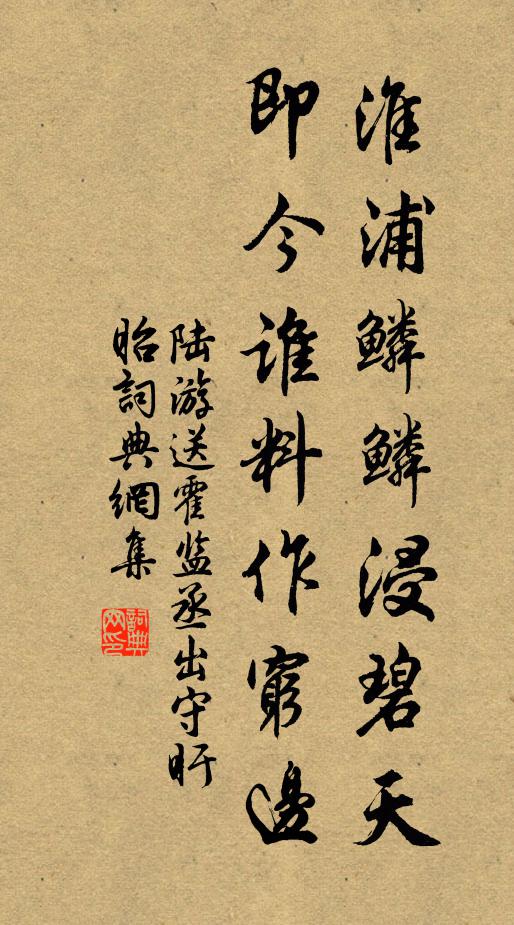 淮浦鳞鳞浸碧天
即今谁料作窮邊
陆游送霍监丞出守盱
眙詞典網集
詞典
网印